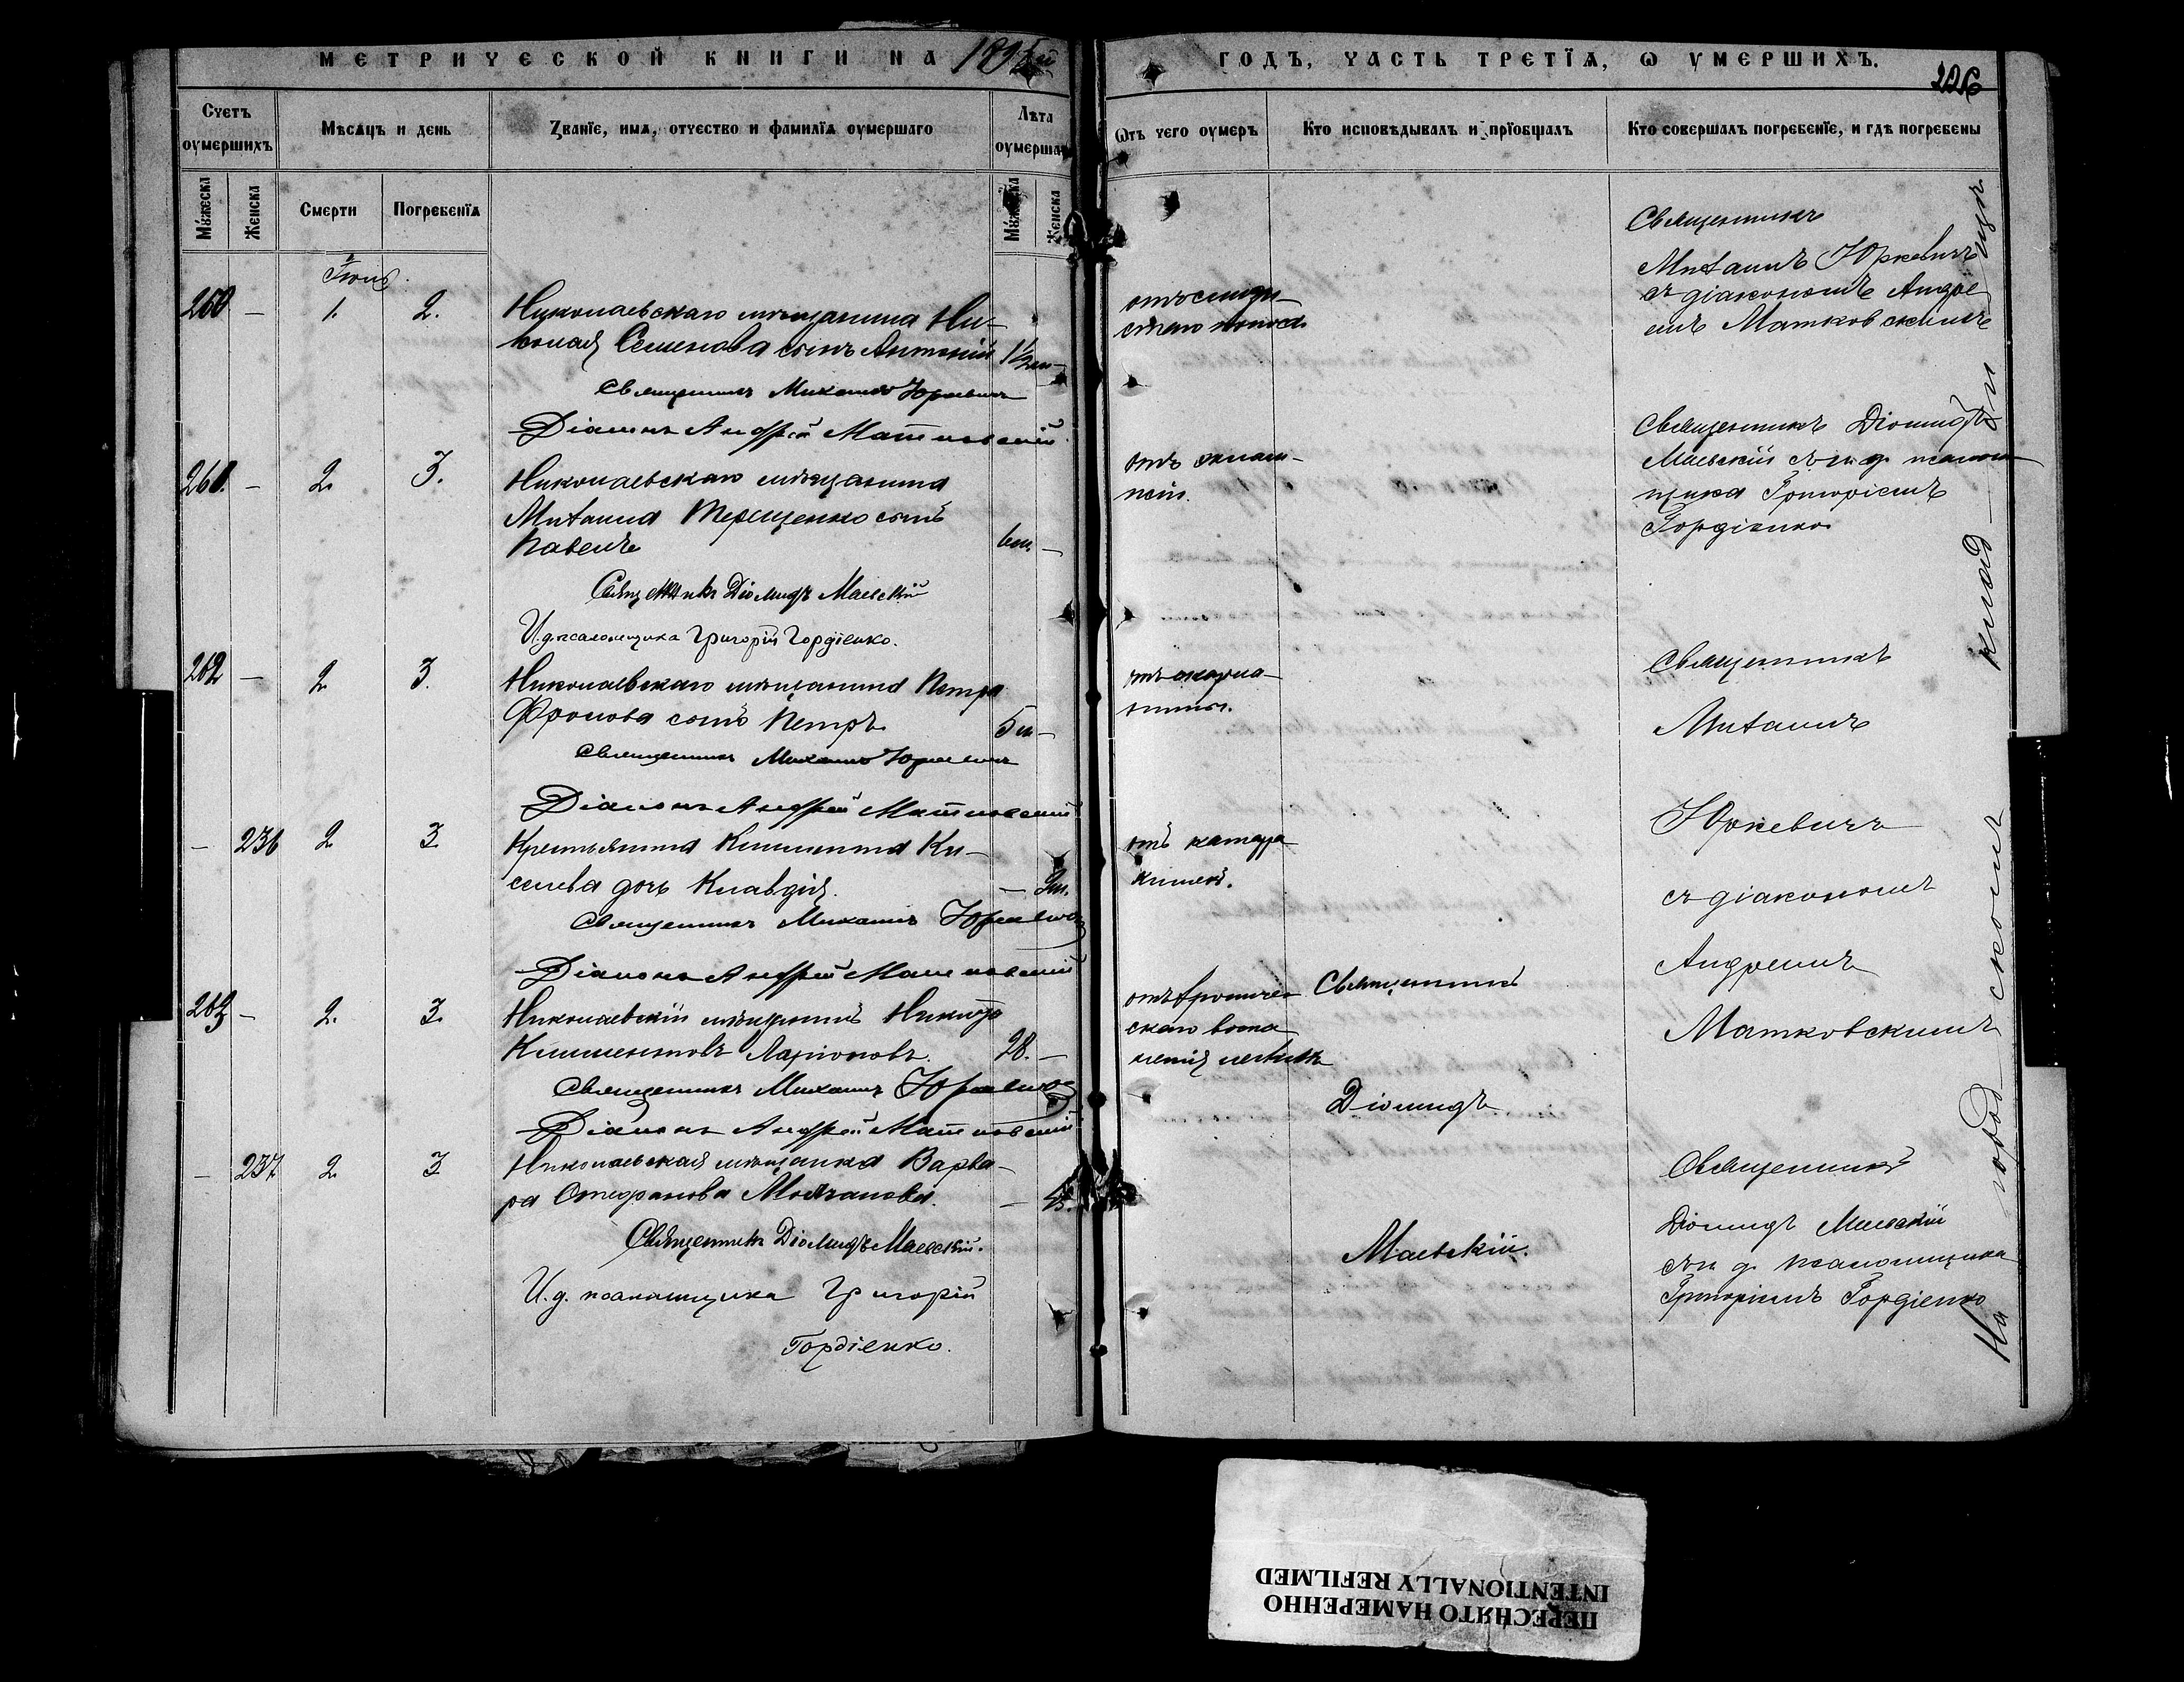 МЕТРИЧЕСКОЙ КНИГИ НА 1895й
ГОДЪ, ЧАСТЬ ТРЕТІЯ, Ѡ УМЕРШИХЪ.
226
Счетъ оумершихъ
Мѣсяцъ и день
Званіе, имя, отчество и фамилія оумершаго
Лѣта оумершаго
Мужеска
Женска
Смерти
Погребенія
Мужеска
Женска
Ѿ чего оумеръ
Кто исповѣдывалъ и пріобщалъ
Кто совершалъ погребеніе, и гдѣ погребены
Іюнь
260 — 1. 2.
Николаевскаго мѣщанина Ни-
колая Семенова сынъ Антоній 1½ м —
Священникъ Михаилъ Юркевичъ
Діаконъ Андрей Матковскій
Священникъ
Михаилъ Юркевичъ
съ діакономъ Андре
емъ Матковскимъ
261. — 2. 3.
Николаевскаго мѣщанина
Михаила Терещенко сынъ
Павелъ 6 м. —
Священникъ Діомидъ Маевскій
И. д. псаломщика Григорій Гордіенко.
отъ эклам-
псіи.
Священникъ Діомидъ
Маевскій съ и. д. псалом
щика Григоріемъ
Гордіенко
262 — 2. 3.
Николаевскаго мѣщанина Петра
Фролова сынъ Петръ 5 м —
Священникъ Михаилъ Юркевичъ
Діаконъ Андрей Матковскій
— 236 2. 3.
Крестьянина Климента Ки-
селева дочь Клавдія. —
Священникъ Михаилъ Юркевичъ
Діаконъ Андрей Матковскій
отъ катара
кишекъ.
Священникъ
Михаилъ
Юркевичъ
съ діакономъ
Андреемъ
Матковскимъ
263 — 2. 3.
Николаевскій мѣщанинъ Никита
Климентовъ Ларіоновъ. 28. —
Священникъ Михаилъ Юркевичъ
Діаконъ Андрей Матковскій
отъ хрониче
скаго воспа
ленія легкихъ
Священникъ
Діомидъ
Маевскій.
— 237. 2 3
Николаевская мѣщанка Варва-
ра Стефанова Молчанова. —
Священникъ Діомидъ Маевскій.
И. д. псаломщика Григорій
Гордіенко.
Священникъ
Діомидъ Маевскій
съ и. д. псаломщика
Григоріемъ Гордіенко
На городскомъ кладбищѣ
ПЕРЕСНЯТО НАМЕРЕННО
INTENTIONALLY REFILMED